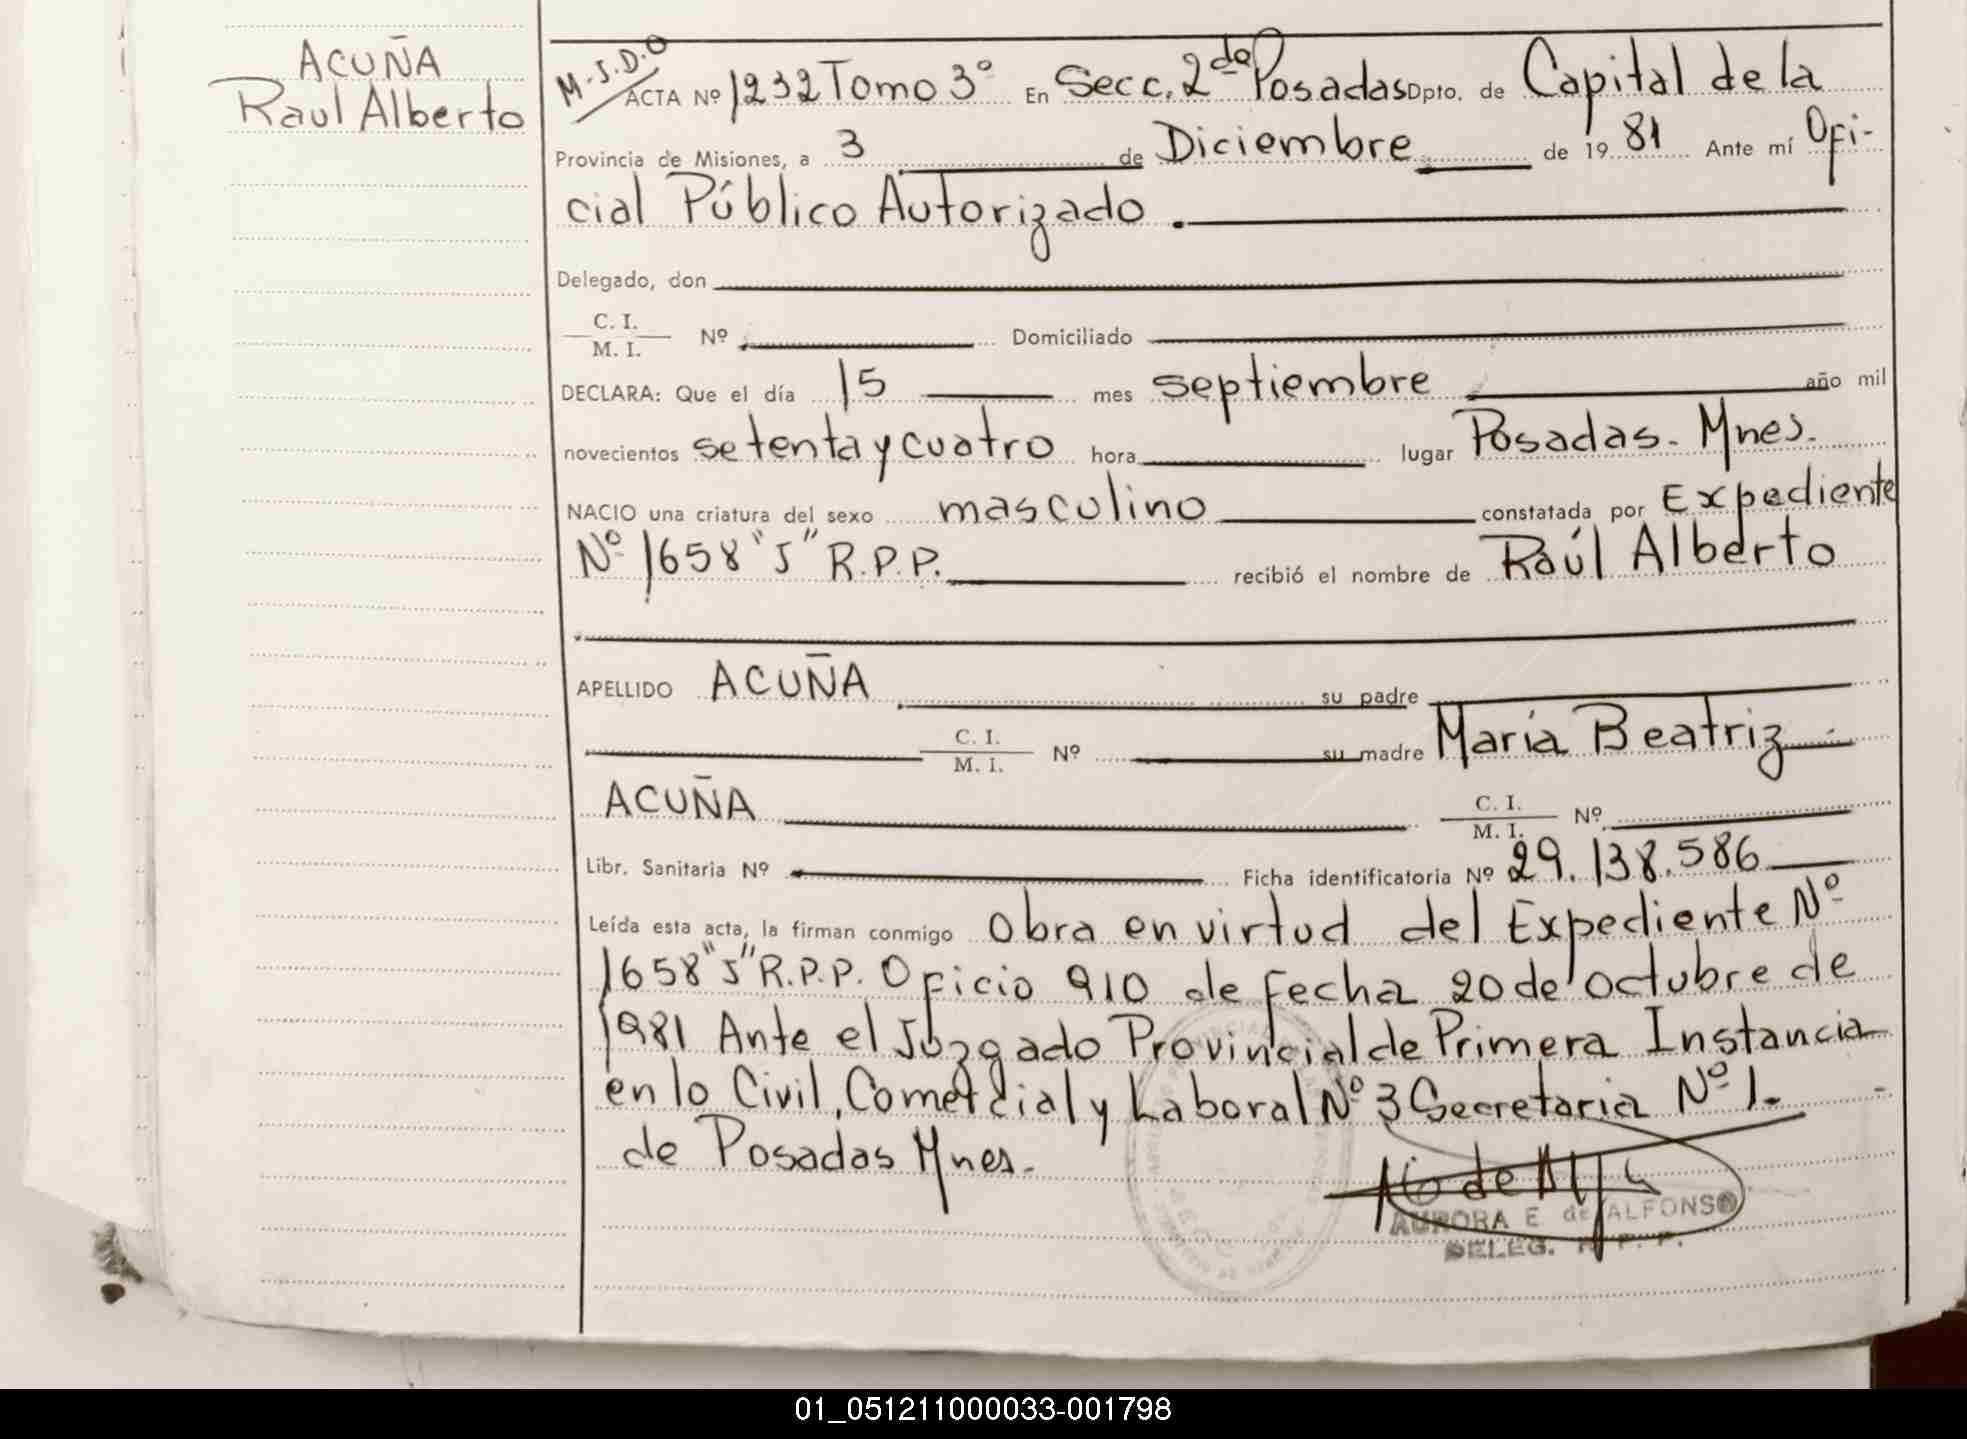 ACUÑA
Raul Alberto
M.J.D.O
ACTA Nº 1232 Tomo 3º En Secc. 2da Posadas Dpto. de Capital de la
Provincia de Misiones, a 3 de Diciembre de 1981 Ante mí Ofi-
cial Público Autorizado.
Delegado, don
C. I.
M. I. Nº Domiciliado
DECLARA: Que el día 15 mes septiembre año mil
novecientos setenta y cuatro hora lugar Posadas. Mnes.
NACIO una criatura del sexo masculino constatada por Expediente
Nº 1658 "J" R.P.P. recibió el nombre de Raúl Alberto
APELLIDO ACUÑA su padre
C. I.
M. I. Nº su madre María Beatriz
ACUÑA C. I.
M. I. Nº
Libr. Sanitaria Nº Ficha identificatoria Nº 29.138.586
Leída esta acta, la firman conmigo Obra en virtud del Expediente Nº
1658 "J" R.P.P. Oficio 910 de fecha 20 de octubre de
1981 Ante el Juzgado Provincial de Primera Instancia
en lo Civil, Comercial y Laboral Nº 3 Secretaria Nº 1.
de Posadas Mnes.
AURORA E de ALFONSO
DELEG. R. P. P.
01_051211000033-001798